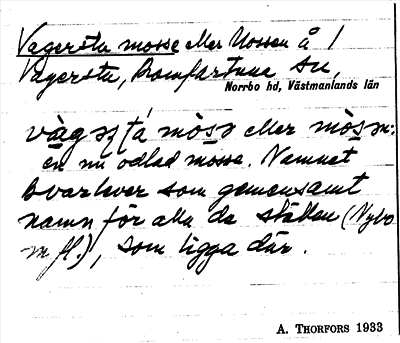 Vagersta mosse eller Mossen å /
Vagersta, Romfartuna sn,
Norrbo hd, Västmanlands län
eller
en nu odlad mosse. Namnet
kvarlever som gemensamt
namn för alla de ställen (Nybo
m fl.), som ligga där.
A. THORFORS 1933